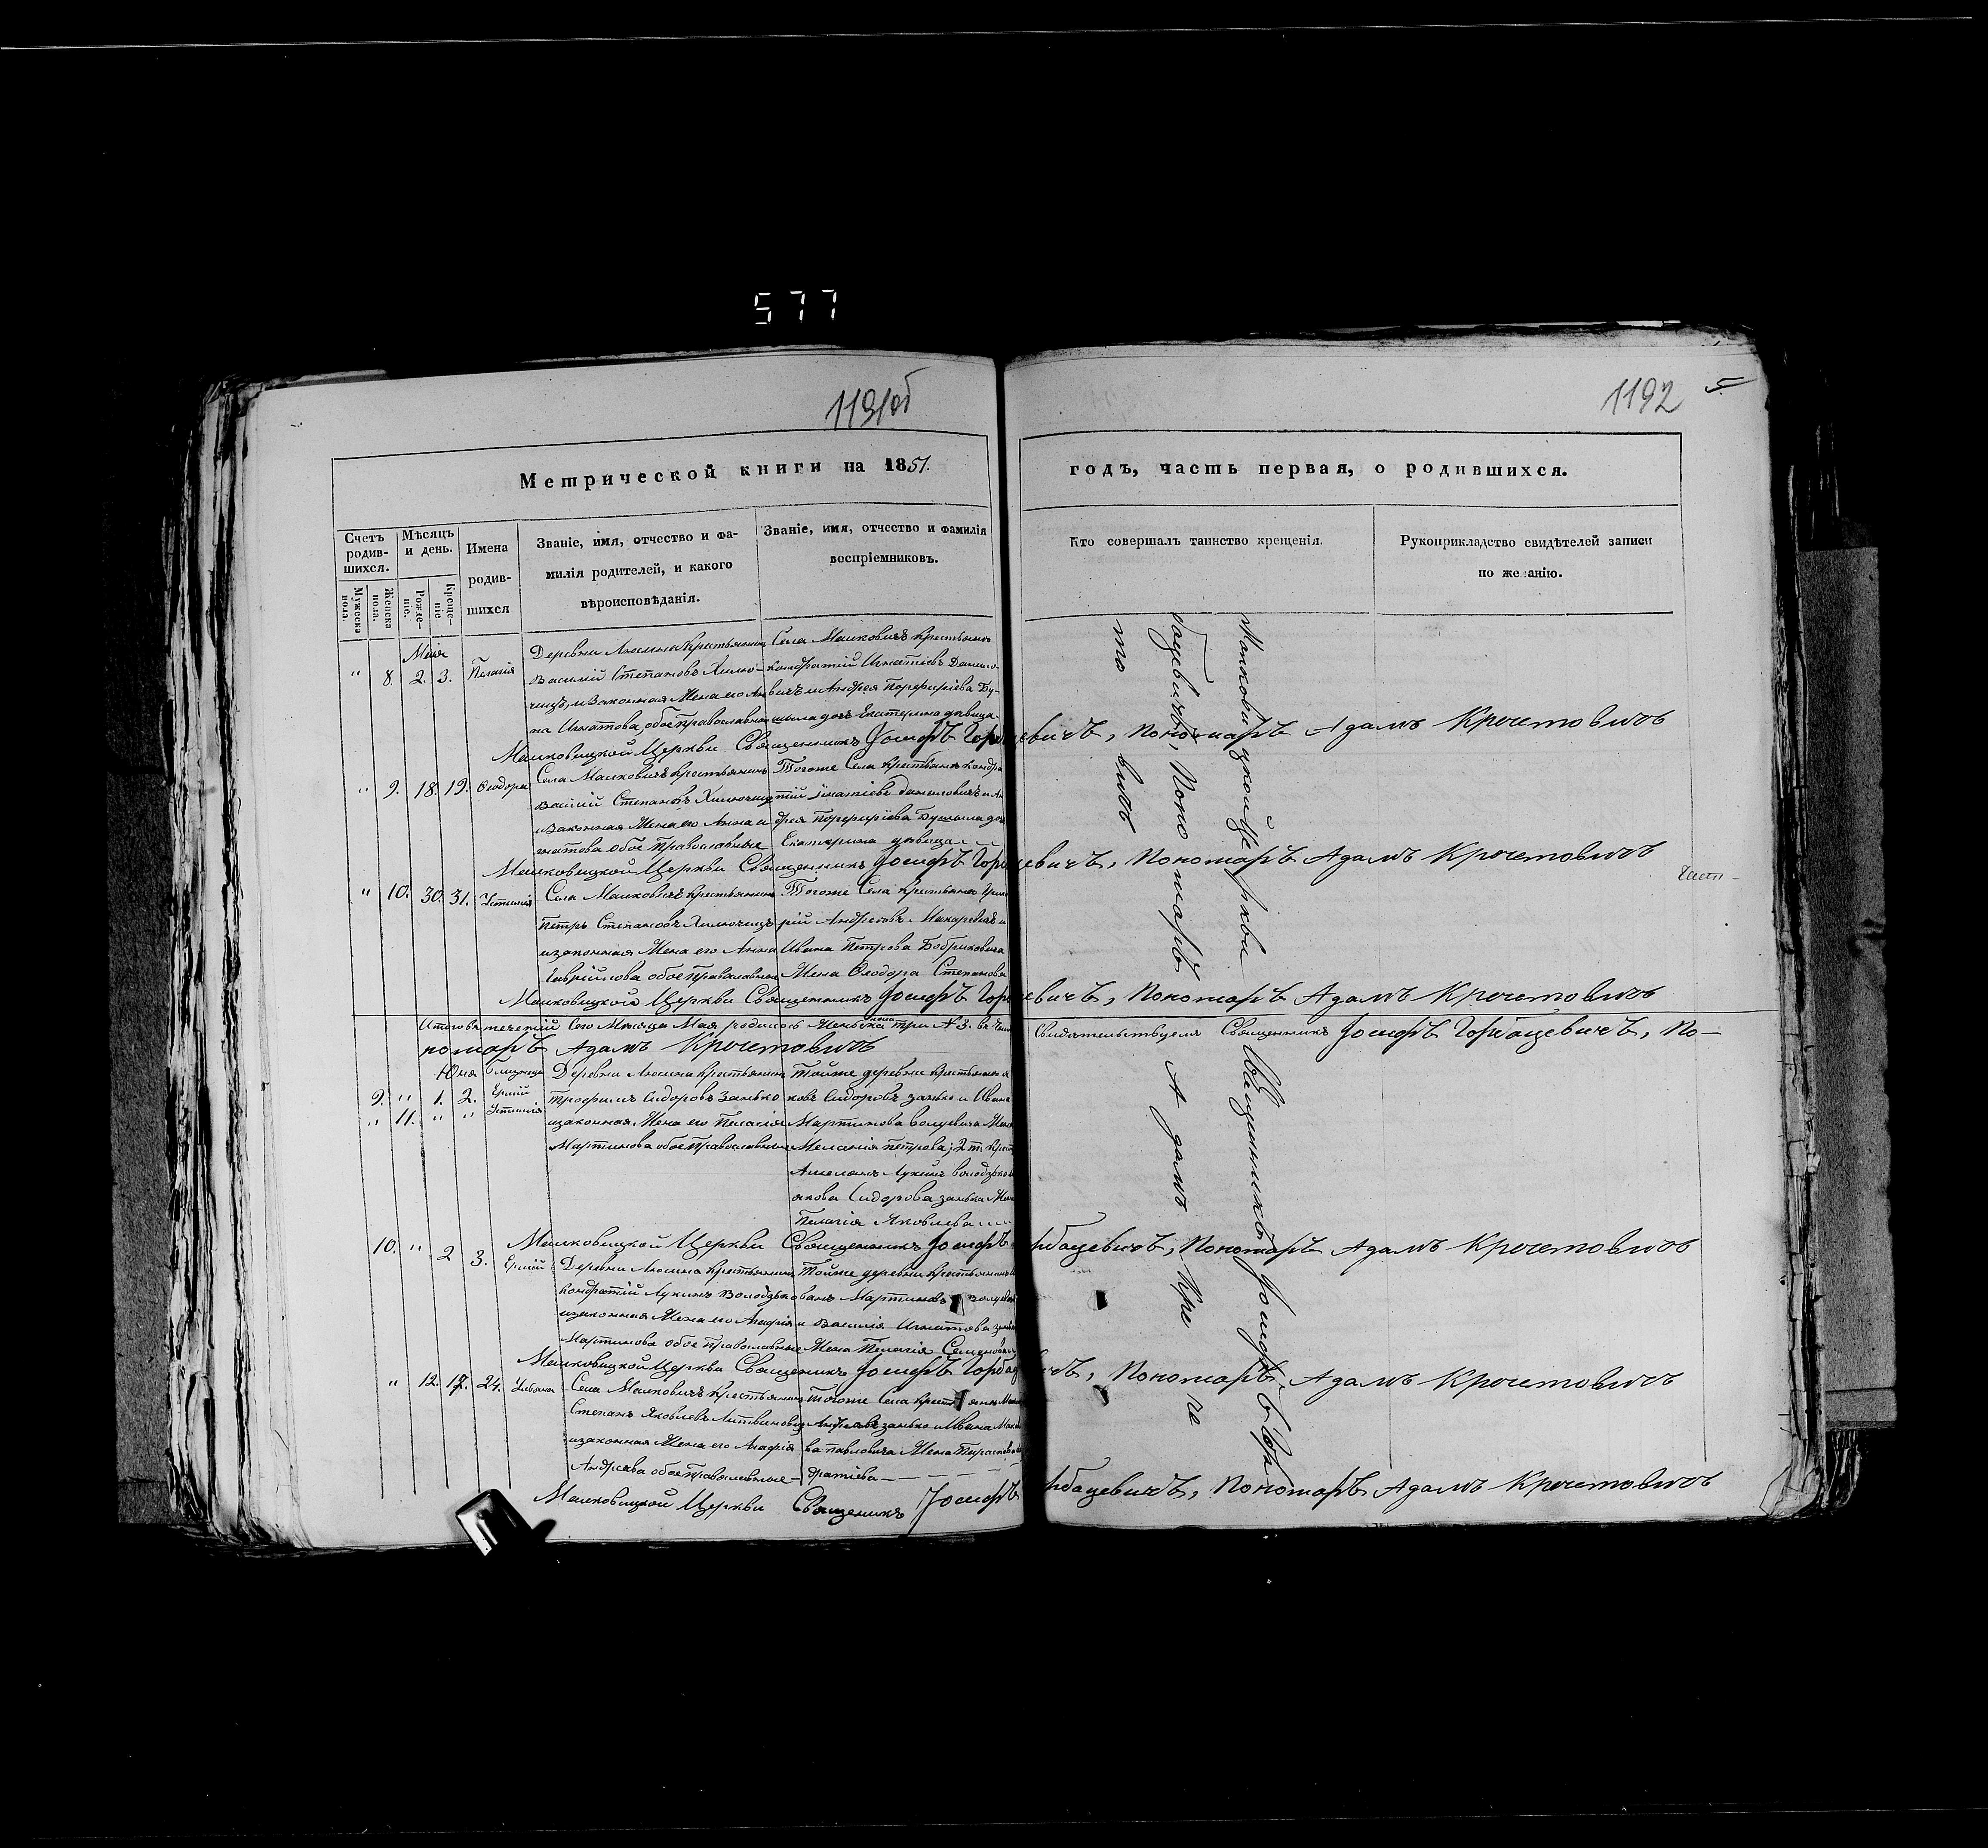 577
1191об
1192
5
Метрической книги на 1851.
годъ, часть первая, о родившихся.
Счетъ родив-шихся.
Мужеска пола.
Женска пола.
Мѣсяцъ и день.
Рожде-ніе.
Креще-ніе
Имена
родив-
шихся
Званіе, имя, отчество и фа-
милія родителей, и какого
вѣроисповѣданія.
Званіе, имя, отчество и фамилія
воспріемниковъ.
Кто совершалъ таинство крещенія.
Рукоприкладство свидѣтелей записи
по желанію.
Мая
" 8. 2. 3. Пелагія
Деревни Люсина Крестьянинъ
Василій Степановъ Хилю-
чицъ, и Законная Жена его Ан-
на Игнатова, обое православные
Села Малковичъ Крестьянинъ
Кондратій Игнатіевъ Данило-
вичъ и Андрея Порфиріева Бу-
шыла дочь Екатерина дѣвица
Малковицкой Церкви Священникъ Іосифъ Горбацевичъ, Пономаръ Адамъ Кречетовичъ
" 9. 18. 19. Ѳеодора
Села Малковичъ Крестьянинъ
Степановъ Хилючицъ
и Законная Жена его Анна И
гнатова обое Православные
Тогоже Села Крестьянинъ Кондра
тій Игнатіевъ Даниловичъ и Ан
дрея Порфиріева Бушыла доч
Екатерина дѣвица
Малковицкой Церкви Священникъ Іосифъ Горбацевичъ, Пономаръ Адамъ Кречетовичъ
" 10. 30. 31. Устинія
Села Малковичъ Крестьянинъ
Петръ Степановъ Хилючицъ
изаконная Жена его Анна
Гаврійлова обое Православные
Тогоже Села Крестьянинъ Григо
рій Андреевъ Макаревичъ и
Ивана Петрова Бобриковича
Жена Ѳеодора Степанова
Малковицкой Церкви Священникъ Іосифъ Горбацевичъ, Пономаръ Адамъ Кречетовичъ
Итого въ теченій Сего Месяца Мая родилось Женска пола три №3.
Свидѣтельствуемъ Священникъ Іосифъ Горбацевичъ, По-
номаръ Адамъ Кречетовичъ
Юня близнецы
9. " 1. 2. Ермій
" 11. " " Устинія
Деревни Люсина Крестьянинъ
трофимъ Сидоровъ Занько
изаконная Жена его Пелагія
Мартинова обое Православные
Тойже деревни Крестьянинъ я
ковъ Сидоровъ занько и Ивана
Мартинова Волчевича Жена
Меланія петрова; 2 т. Крест
Амелянъ Лукинъ володзько
якова Сидорова занька Жена
Пелагія Яковлева
Малковицкой Церкви Священникъ Іосифъ Горбацевичъ, Пономаръ Адамъ Кречетовичъ
10. " 2 3. Ермій
Деревни Люсина Крестьянинъ
Кондратій Лукинъ Володзько
изаконная Жена его Агафія
Мартинова обое православные
Тойже деревни Крестьянинъ И
ванъ Мартиновъ
и Василія Игнатова
Жена Пелагія
Малковицкой Церкви Священникъ Іосифъ Горбацевичъ, Пономаръ Адамъ Кречетовичъ
" 12. 17. 24. Ульяна
Села Малковичъ Крестьянинъ
Степанъ Яковлевъ Литвиновичъ
изаконная Жена его Агафія
Андреева обое Православные
Тогоже Села Крестьянинъ
Андреевъ занько и Ивана
ва павловича Жена
дратіева
Малковицкой Церкви Священникъ Іосифъ Горбацевичъ, Пономаръ Адамъ Кречетовичъ
Малковицкой Церкви Священникъ Іосифъ Гор
бацевичъ, Пономаръ Адамъ Кре че
то вичъ